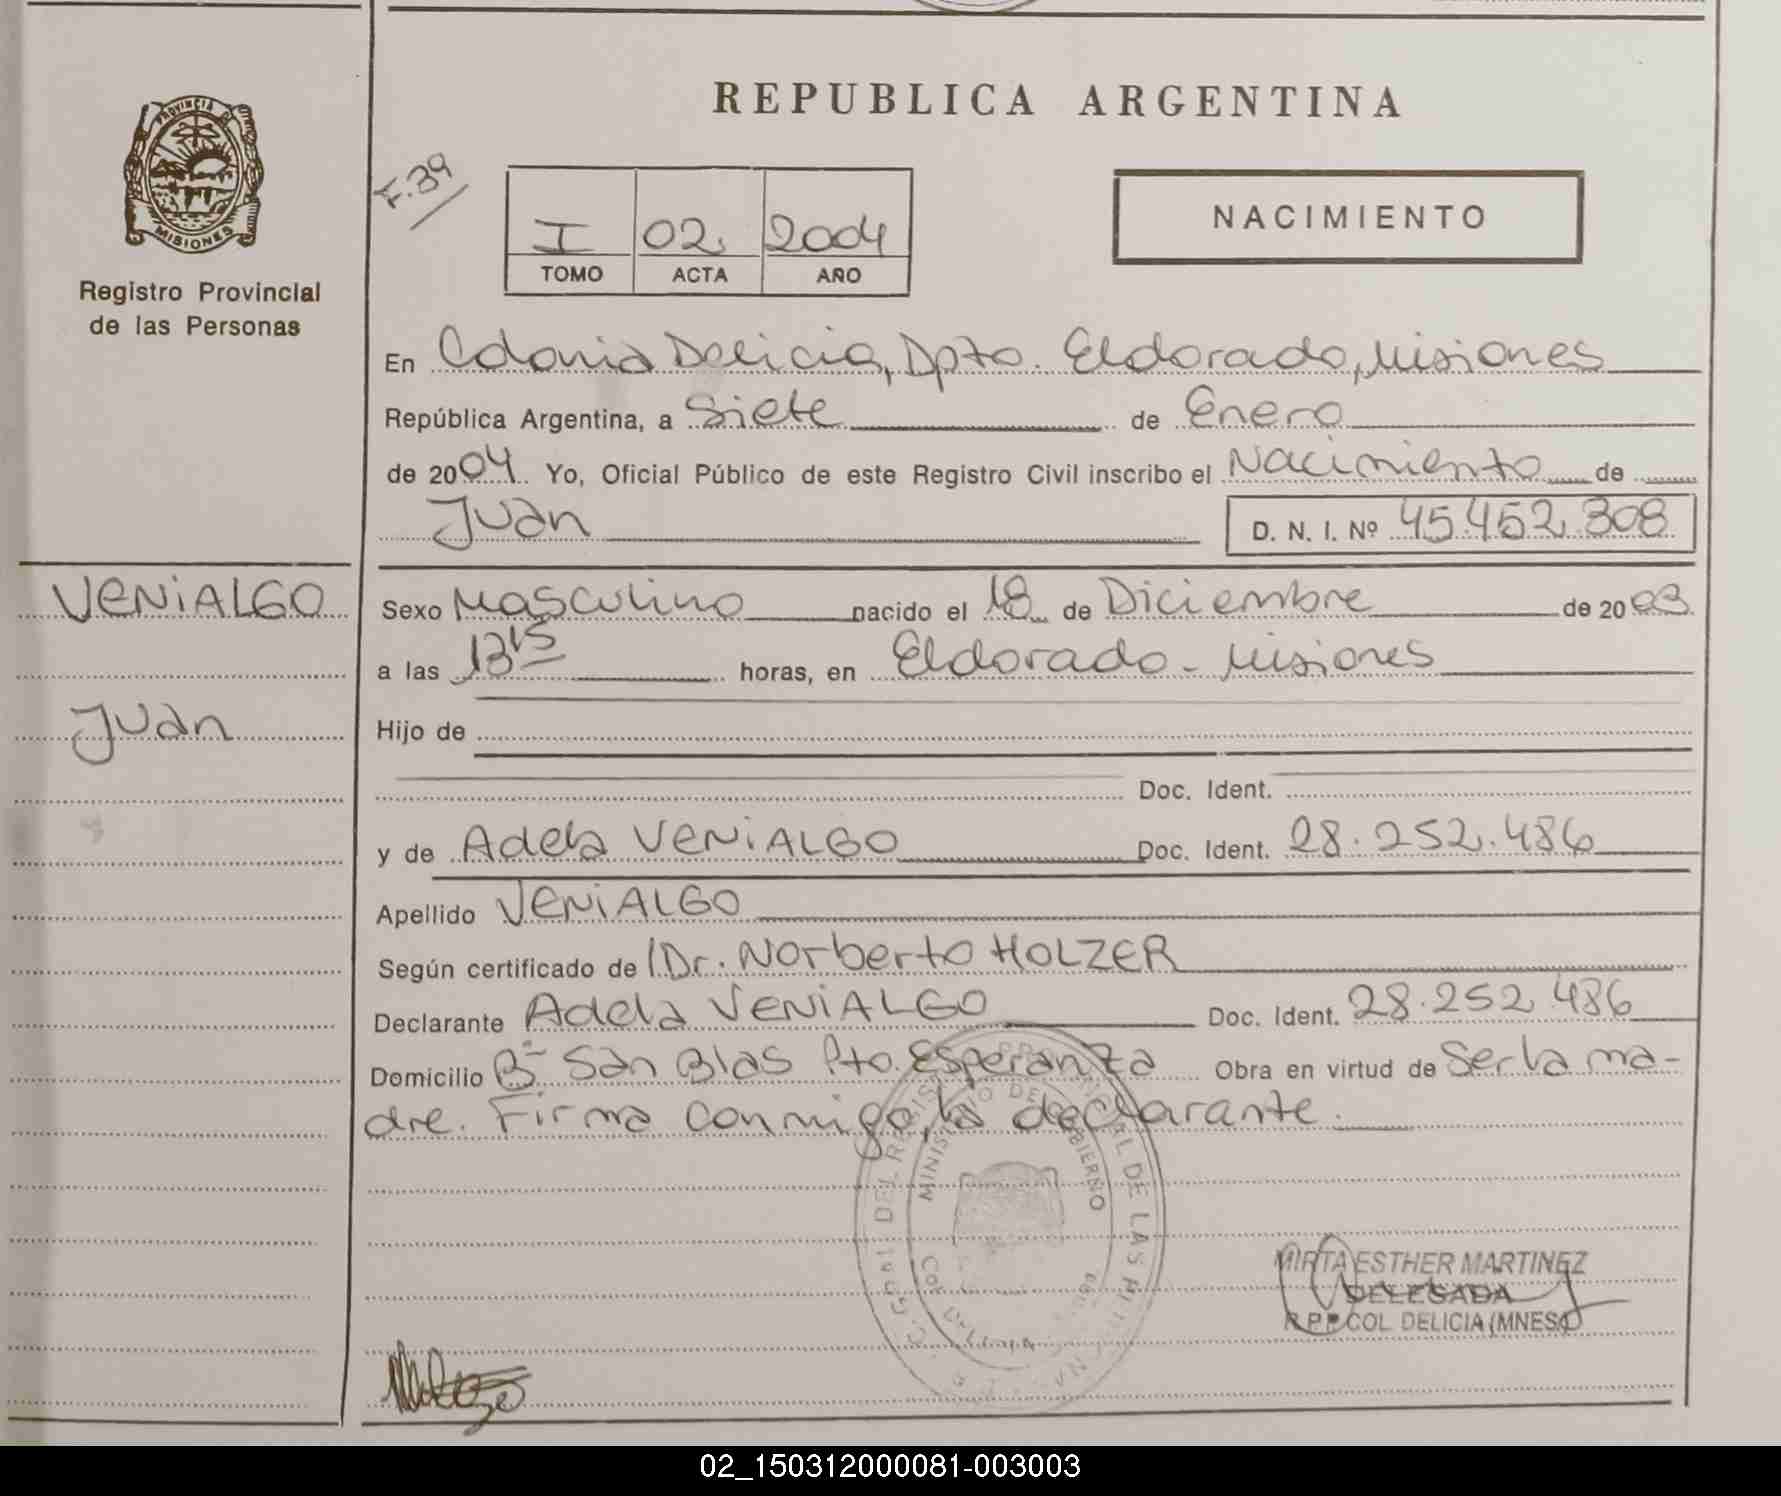 REPUBLICA ARGENTINA
PROVINCIA DE
MISIONES
Registro Provincial
de las Personas
F.39
I 02 2004
TOMO ACTA AÑO
NACIMIENTO
En Colonia Delicia, Dpto. Eldorado, Misiones
República Argentina, a Siete de Enero
de 2004 Yo, Oficial Público de este Registro Civil inscribo el Nacimiento de
Juan D. N. I. Nº 45.452.308
VENIALGO
Juan
Sexo Masculino nacido el 18 de Diciembre de 2003
a las 13 15 horas, en Eldorado - Misiones
Hijo de
Doc. Ident.
y de Adela VENIALGO Doc. Ident. 28.252.486
Apellido VENIALGO
Según certificado de Dr. Norberto HOLZER
Declarante Adela VENIALGO Doc. Ident. 28.252.486
Domicilio Bº San Blas Pto. Esperanza Obra en virtud de Ser la ma-
dre. Firma conmigo, la declarante.
MINISTERIO DE GOBIERNO
MIRTA ESTHER MARTINEZ
DELEGADA
R.P.P. COL. DELICIA (MNES.)
02_150312000081-003003